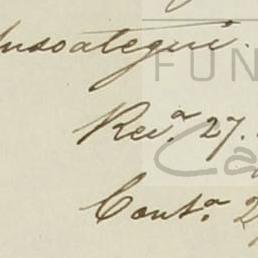 Ansoategui.
FUN
Rev.ª 27.
Ca
Cont.ª 2